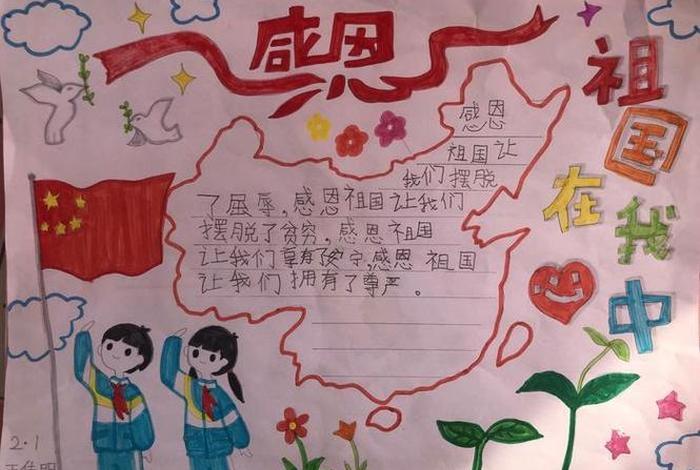 感恩
祖国在我中
感恩
祖国让
我们摆脱
了屈辱,感恩祖国让我们
摆脱了贫穷,感恩祖国
让我们享有了安宁,感恩祖国
让我们拥有了尊严。
2·1